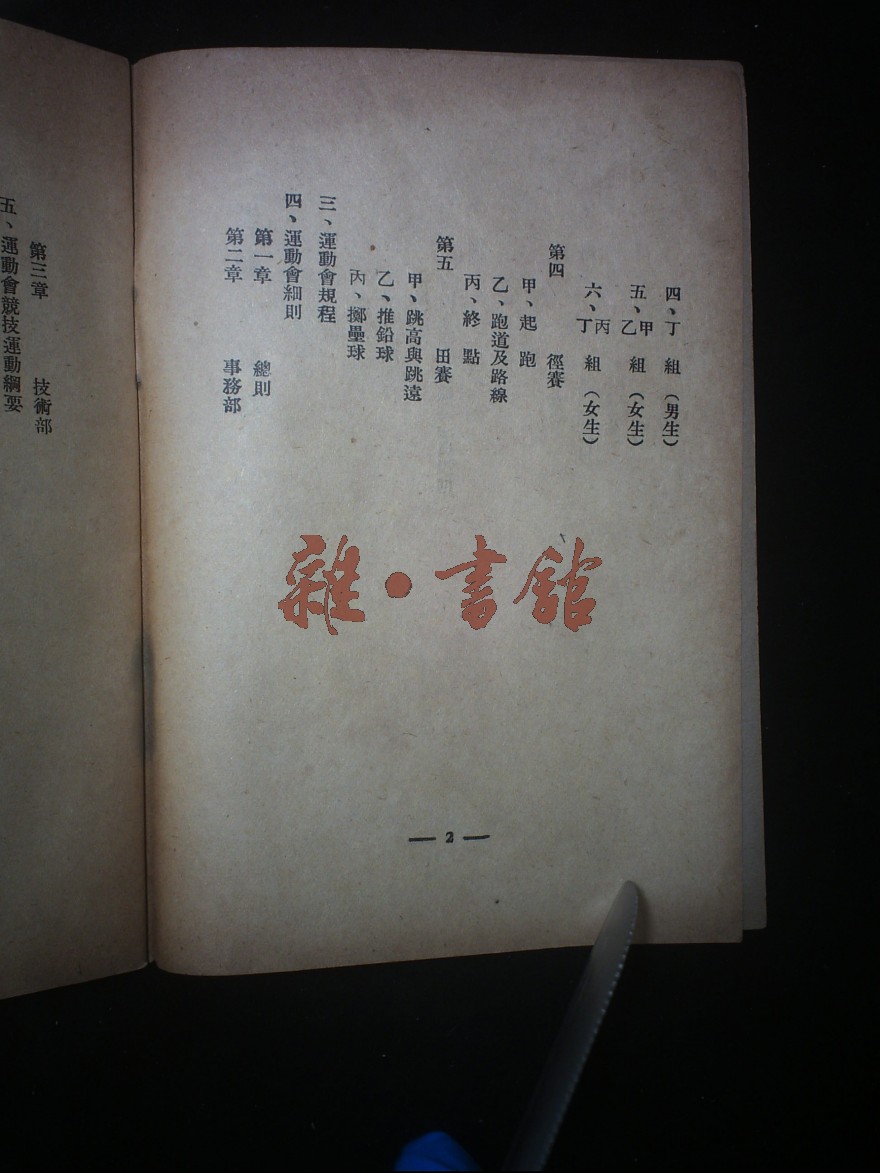 四、丁 組 (男生)
五、甲乙 組 (女生)
六、丙丁 組 (女生)
第四 徑賽
甲、起 跑
乙、跑道及路線
丙、終 點
第五 田賽
甲、跳高與跳遠
乙、推鉛球
丙、擲壘球
三、運動會規程
四、運動會細則
第一章 總則
第二章 事務部
— 2 —
第三章 技術部
五、運動會競技運動綱要
雜·書館